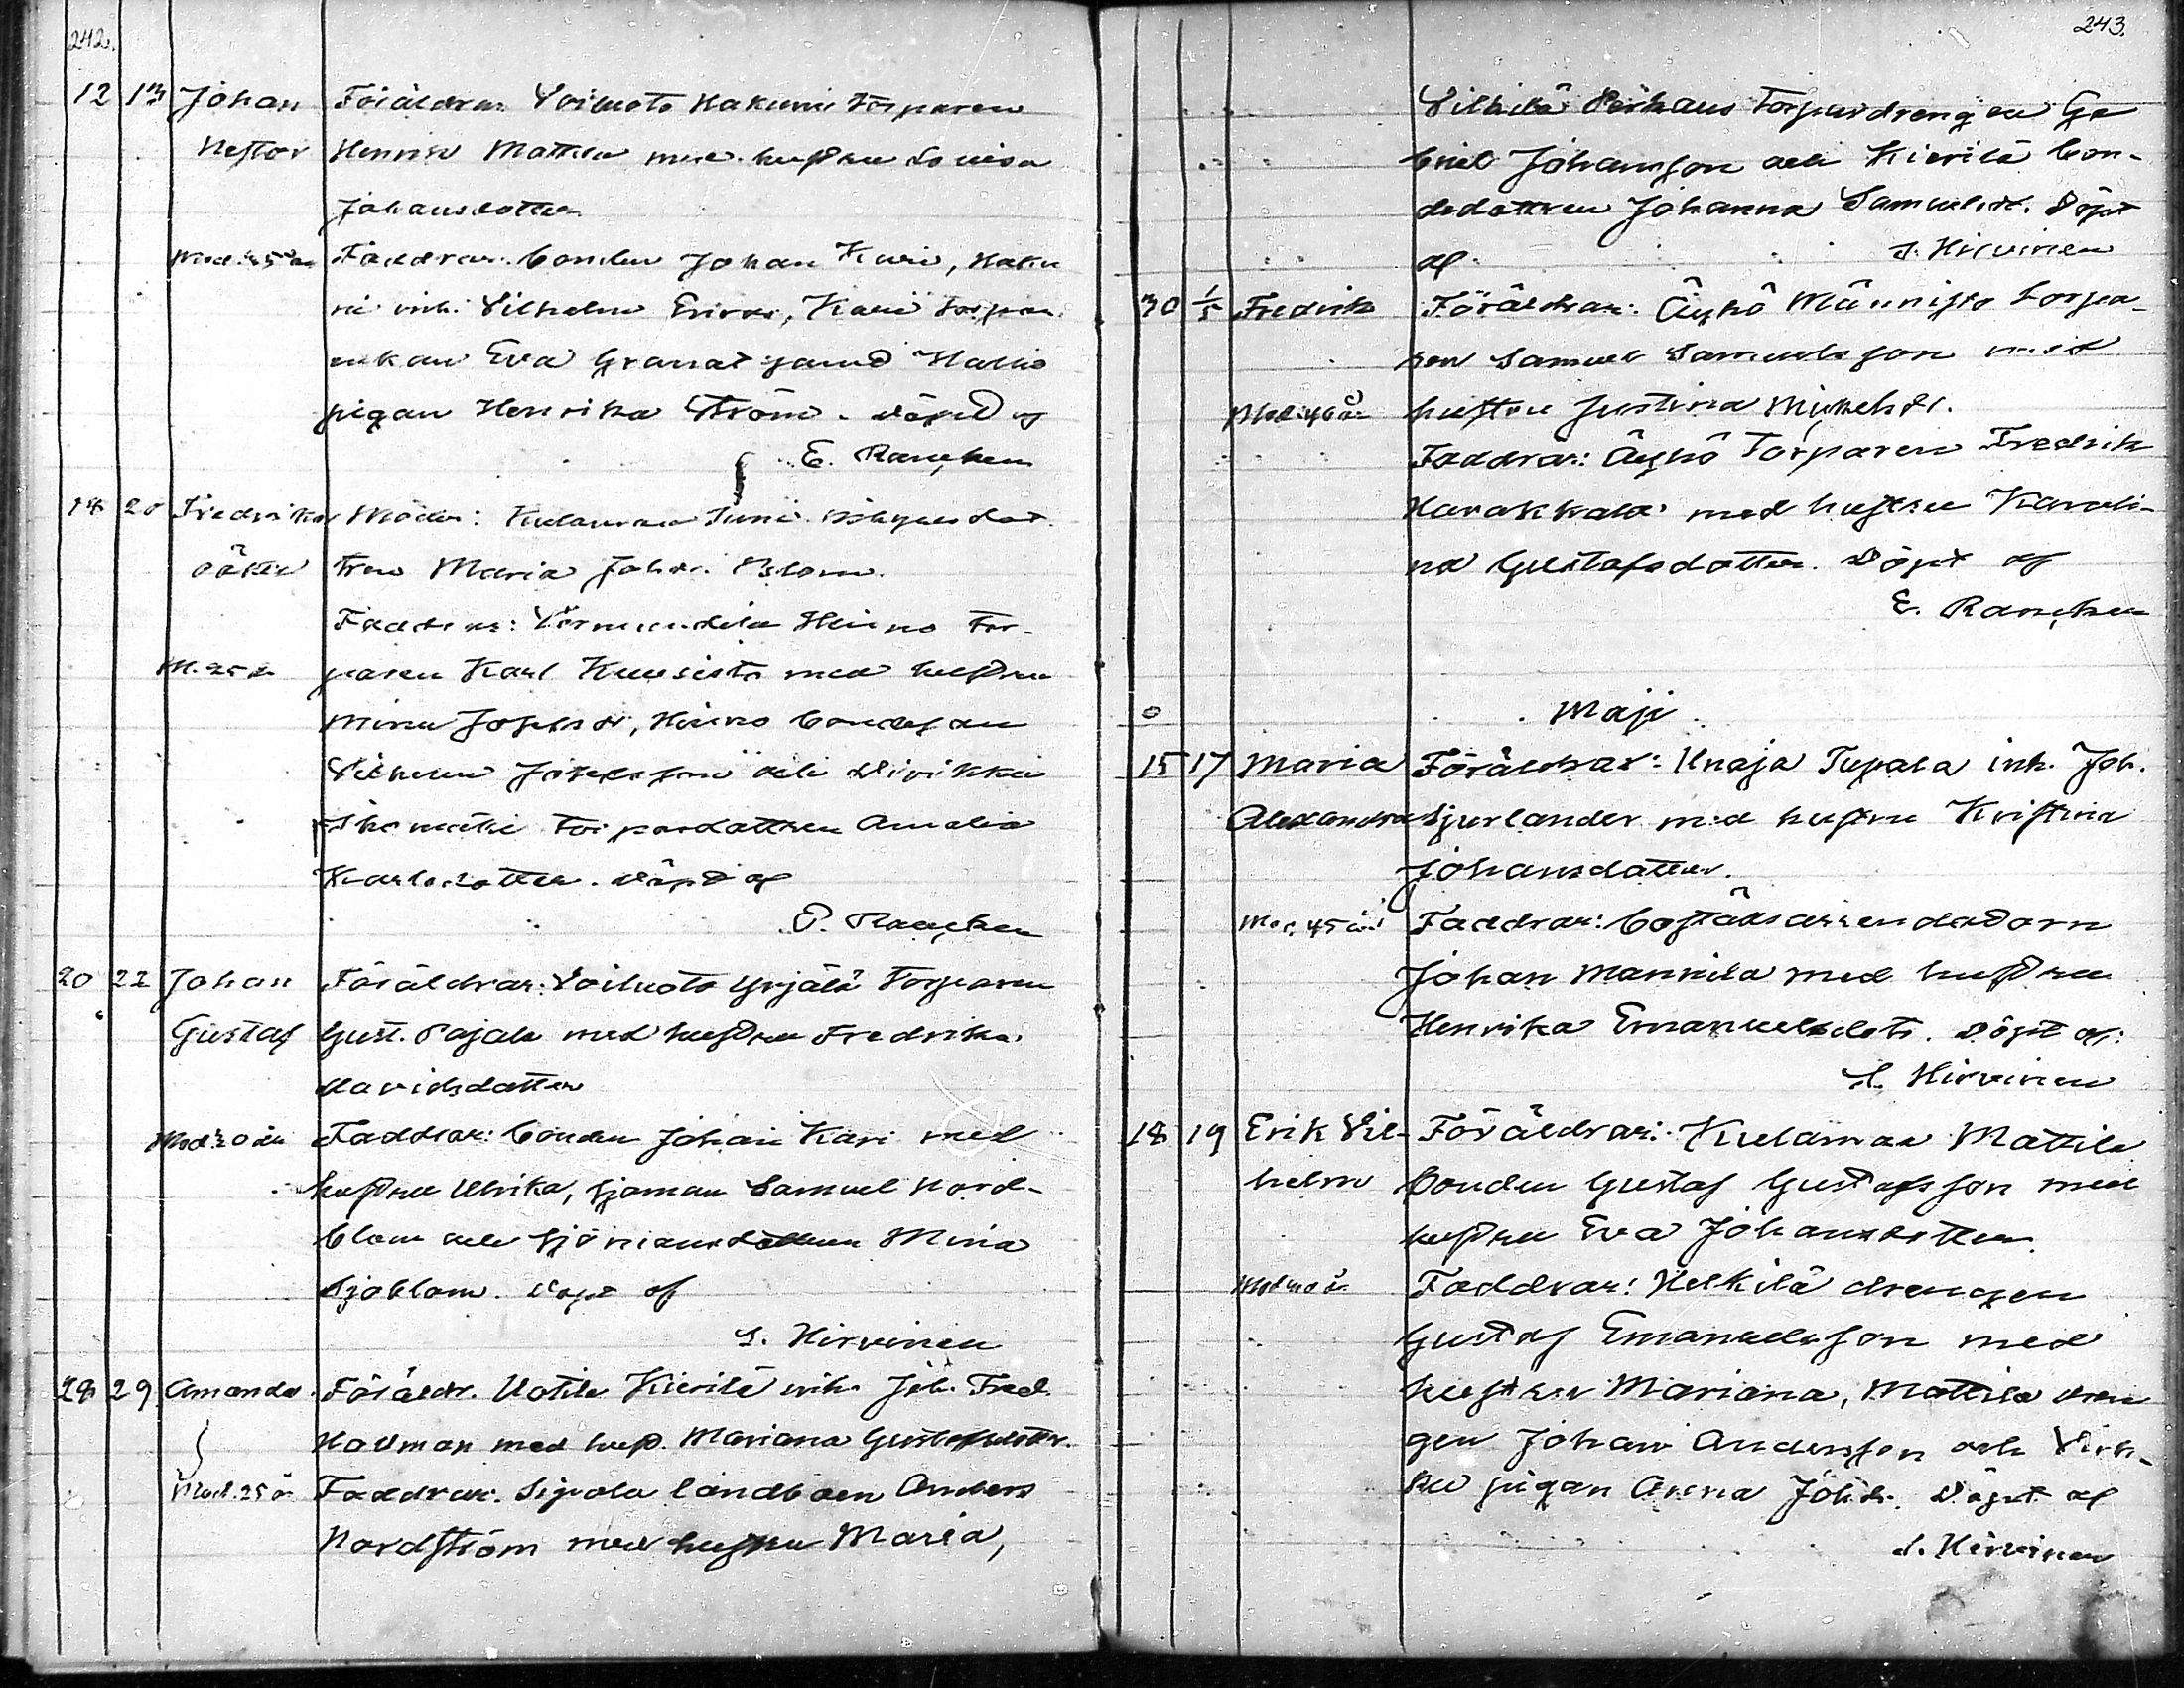 242.
12 13 Johan Föräldrar: Voiluoto Hakuni Torparen
Nestor Henrik Mattila med hustru Lovisa
Johansdotter
Mod. 25 år Faddrar: bonden Johan Kari, Haku
ni inh. Vilhelm, Kari torpare
enkan Eva Granat samt
pigan Henrika Ström. Döpt af
E. Rancken
18 20 Fredrika Moder: Kulamaa Juni
oäkta tren Maria Johdr. Blom.
Faddrar: Heino Tor-
M. 25 år paren Karl Kuusisto med hustru
Mina Josefsdr, Heino bondeson
Vilhelm Josefsson och
torpardottren Amalia
Karlsdotter. Döpt af
E. Rancken
20 22 Johan Föräldrar: Voiluoto Yrjälä Torparen
Gustaf Gust. Pajala med hustru Fredrika
Davidsdotter
Mod. 20 år Faddrar: bonden Johan Kari med
hustru Ulrika, sjöman Samuel Nord-
blom och sjömansdottren Mina
Sjöblom. Döpt af
S. Hirvinen
28 29 Amanda Föräldr. Uotila Kierilä inh. Joh. Fred.
med hust. Mariana Gustafsdotter.
Mod. 25 år Faddrar: Sipola landboen Anders
Nordström med hustru Maria,
243.
Torpardrengen Ga
briel Johansson och Kierilä bon-
dedottren Johanna Samuelsdr. Döpt
af S. Hirvinen
30 1/5 Fredrik Föräldrar: Äyhö Männistö torpa-
ren Samuel Samuelsson med
Mod. 40 år hustru Justina Mickelsdr.
Faddrar: Äyhö Torparen Fredrik
Harakkala med hustru Karoli-
na Gustafsdotter. Döpt af
E. Rancken
Maji
15 17 Maria Föräldrar: Unaja Tupala inh. Joh.
Alexandra Sjurlander med hustru Kristina
Johansdotter.
Mod. 45 år Faddrar: Boställsarrendatorn
Johan Mannila med hustru
Henrika Emanuelsdotr. Döpt af:
S. Hirvinen
18 19 Erik Vil- Föräldrar: Kulamaa Mattila
helm Bonden Gustaf Gustafsson med
hustru Eva Johansdotter.
Mod 40 år Faddrar: Heikilä drengen
Gustaf Emanuelsson med
hustru Mariana, Mattila dren
gen Johan Andersson och Virk-
ku pigan Anna Johdr. Döpt af
S. Hirvinen